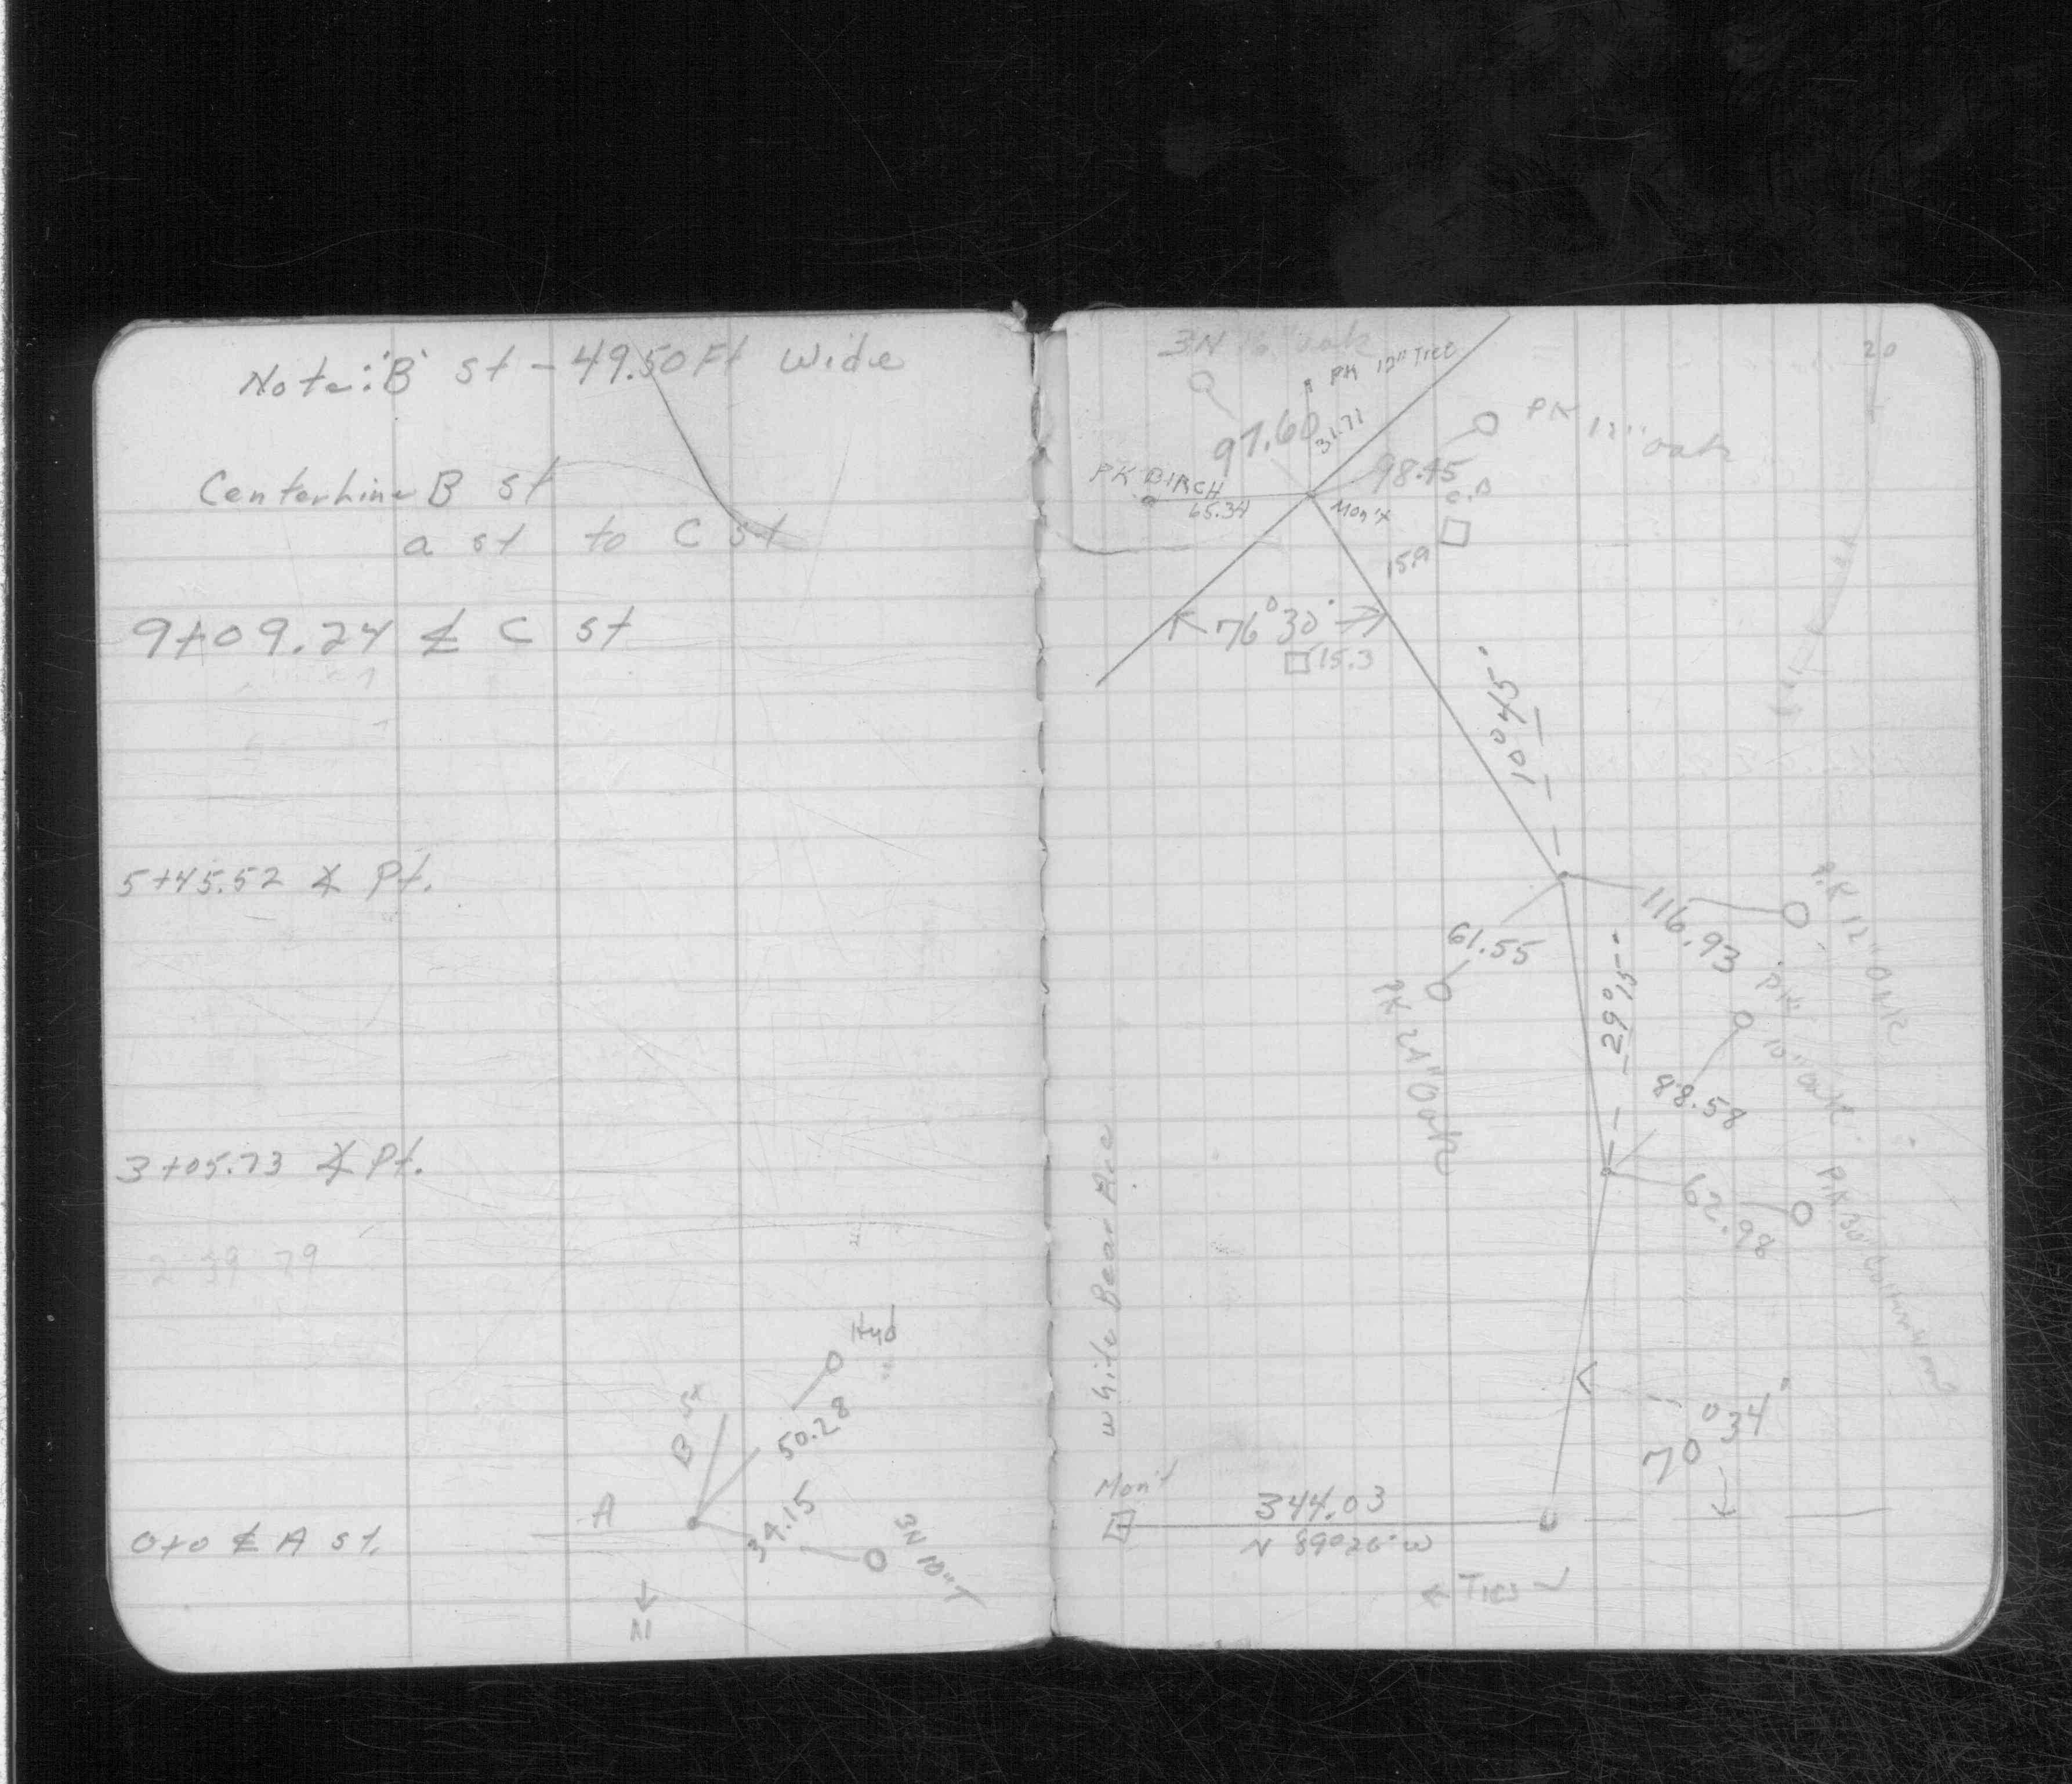 Note: 'B' st - 49.50 Ft Wide
Centerline B st
a st to C st
9+09.24 ⅊ C st
5+45.52 ∡ Pt.
3+05.73 ∡ Pt.
2 39 79
Hyd
B St
50.28
A
34.15
3N 10"T
0+0 ⅊ A st.
N
20
3N 16" oak
PK 12" TREE
97.60
31.71
PK 12" oak
98.45
PK BIRCH
65.34
Mon't
C.B
15.9
76°30'
15.3
10°45'
116.93
P.K 12" OAK
61.55
PK 21" Oak
29°15'
PK 10" OAK
88.58
62.98
PK 30" Cottonwood
White Bear Ave
70°34'
Mon't
344.03
N 89°26' W
← Ties